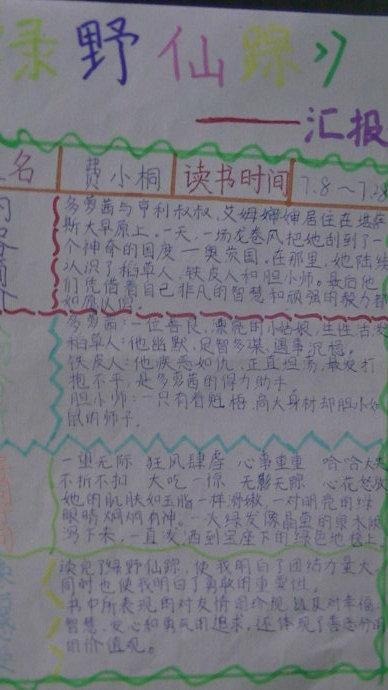 绿野仙踪》
——汇报
名 费小桐 读书时间 7.8～7.28
内容简介
多萝茜与亨利叔叔、艾姆婶婶居住在堪萨
斯大草原上,一天,一场龙卷风把她刮到了一
个神奇的国度——奥茨国,在那里,她陆续
认识了稻草人、铁皮人和胆小狮。最后他
们凭借着自己非凡的智慧和顽强的毅力都
如愿以偿
多萝茜:一位善良,漂亮的小姑娘,生性
稻草人:他幽默,足智多谋,遇事沉稳。
铁皮人:他疾恶如仇,正直坦荡,最爱打
抱不平,是多萝茜的得力助手
胆小狮:一只有着魁梧、高大身材却胆小如
鼠的狮子。
一望无际 狂风肆虐 心事重重 哈哈大
不折不扣 大吃一惊 无影无踪 心花怒放
她的肌肤如玉脂一样滑嫩,一对明亮的绿
眼睛炯炯有神。一头绿发像晶
泻下来,一直 洒到宝座下的绿色地毯上
读完了绿野仙踪,使我明白了团结力量大,
同时也使我明白了勇敢的重要性。
书中所表现的对友情的珍视,以及对幸福
智慧、爱心和勇气的追求,还体现了善恶分明
的价值观。